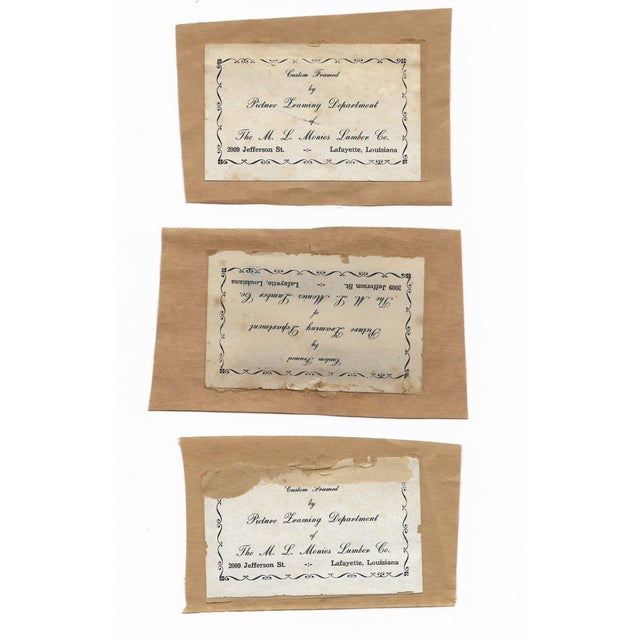 Custom Framed
by
Picture Framing Department
of
The M. L. Monies Lumber Co.
2009 Jefferson St. -:- Lafayette, Louisiana
Custom Framed
by
Picture Framing Department
of
The M. L. Monies Lumber Co.
2009 Jefferson St. -:- Lafayette, Louisiana
Custom Framed
by
Picture Framing Department
of
The M. L. Monies Lumber Co.
2009 Jefferson St. -:- Lafayette, Louisiana